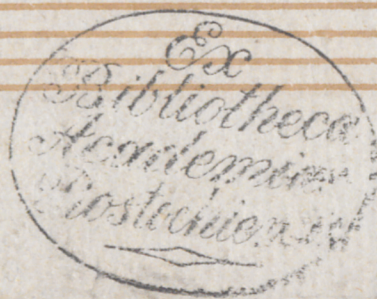 Ex
Bibliotheca
Academiæ
Rostochiensis